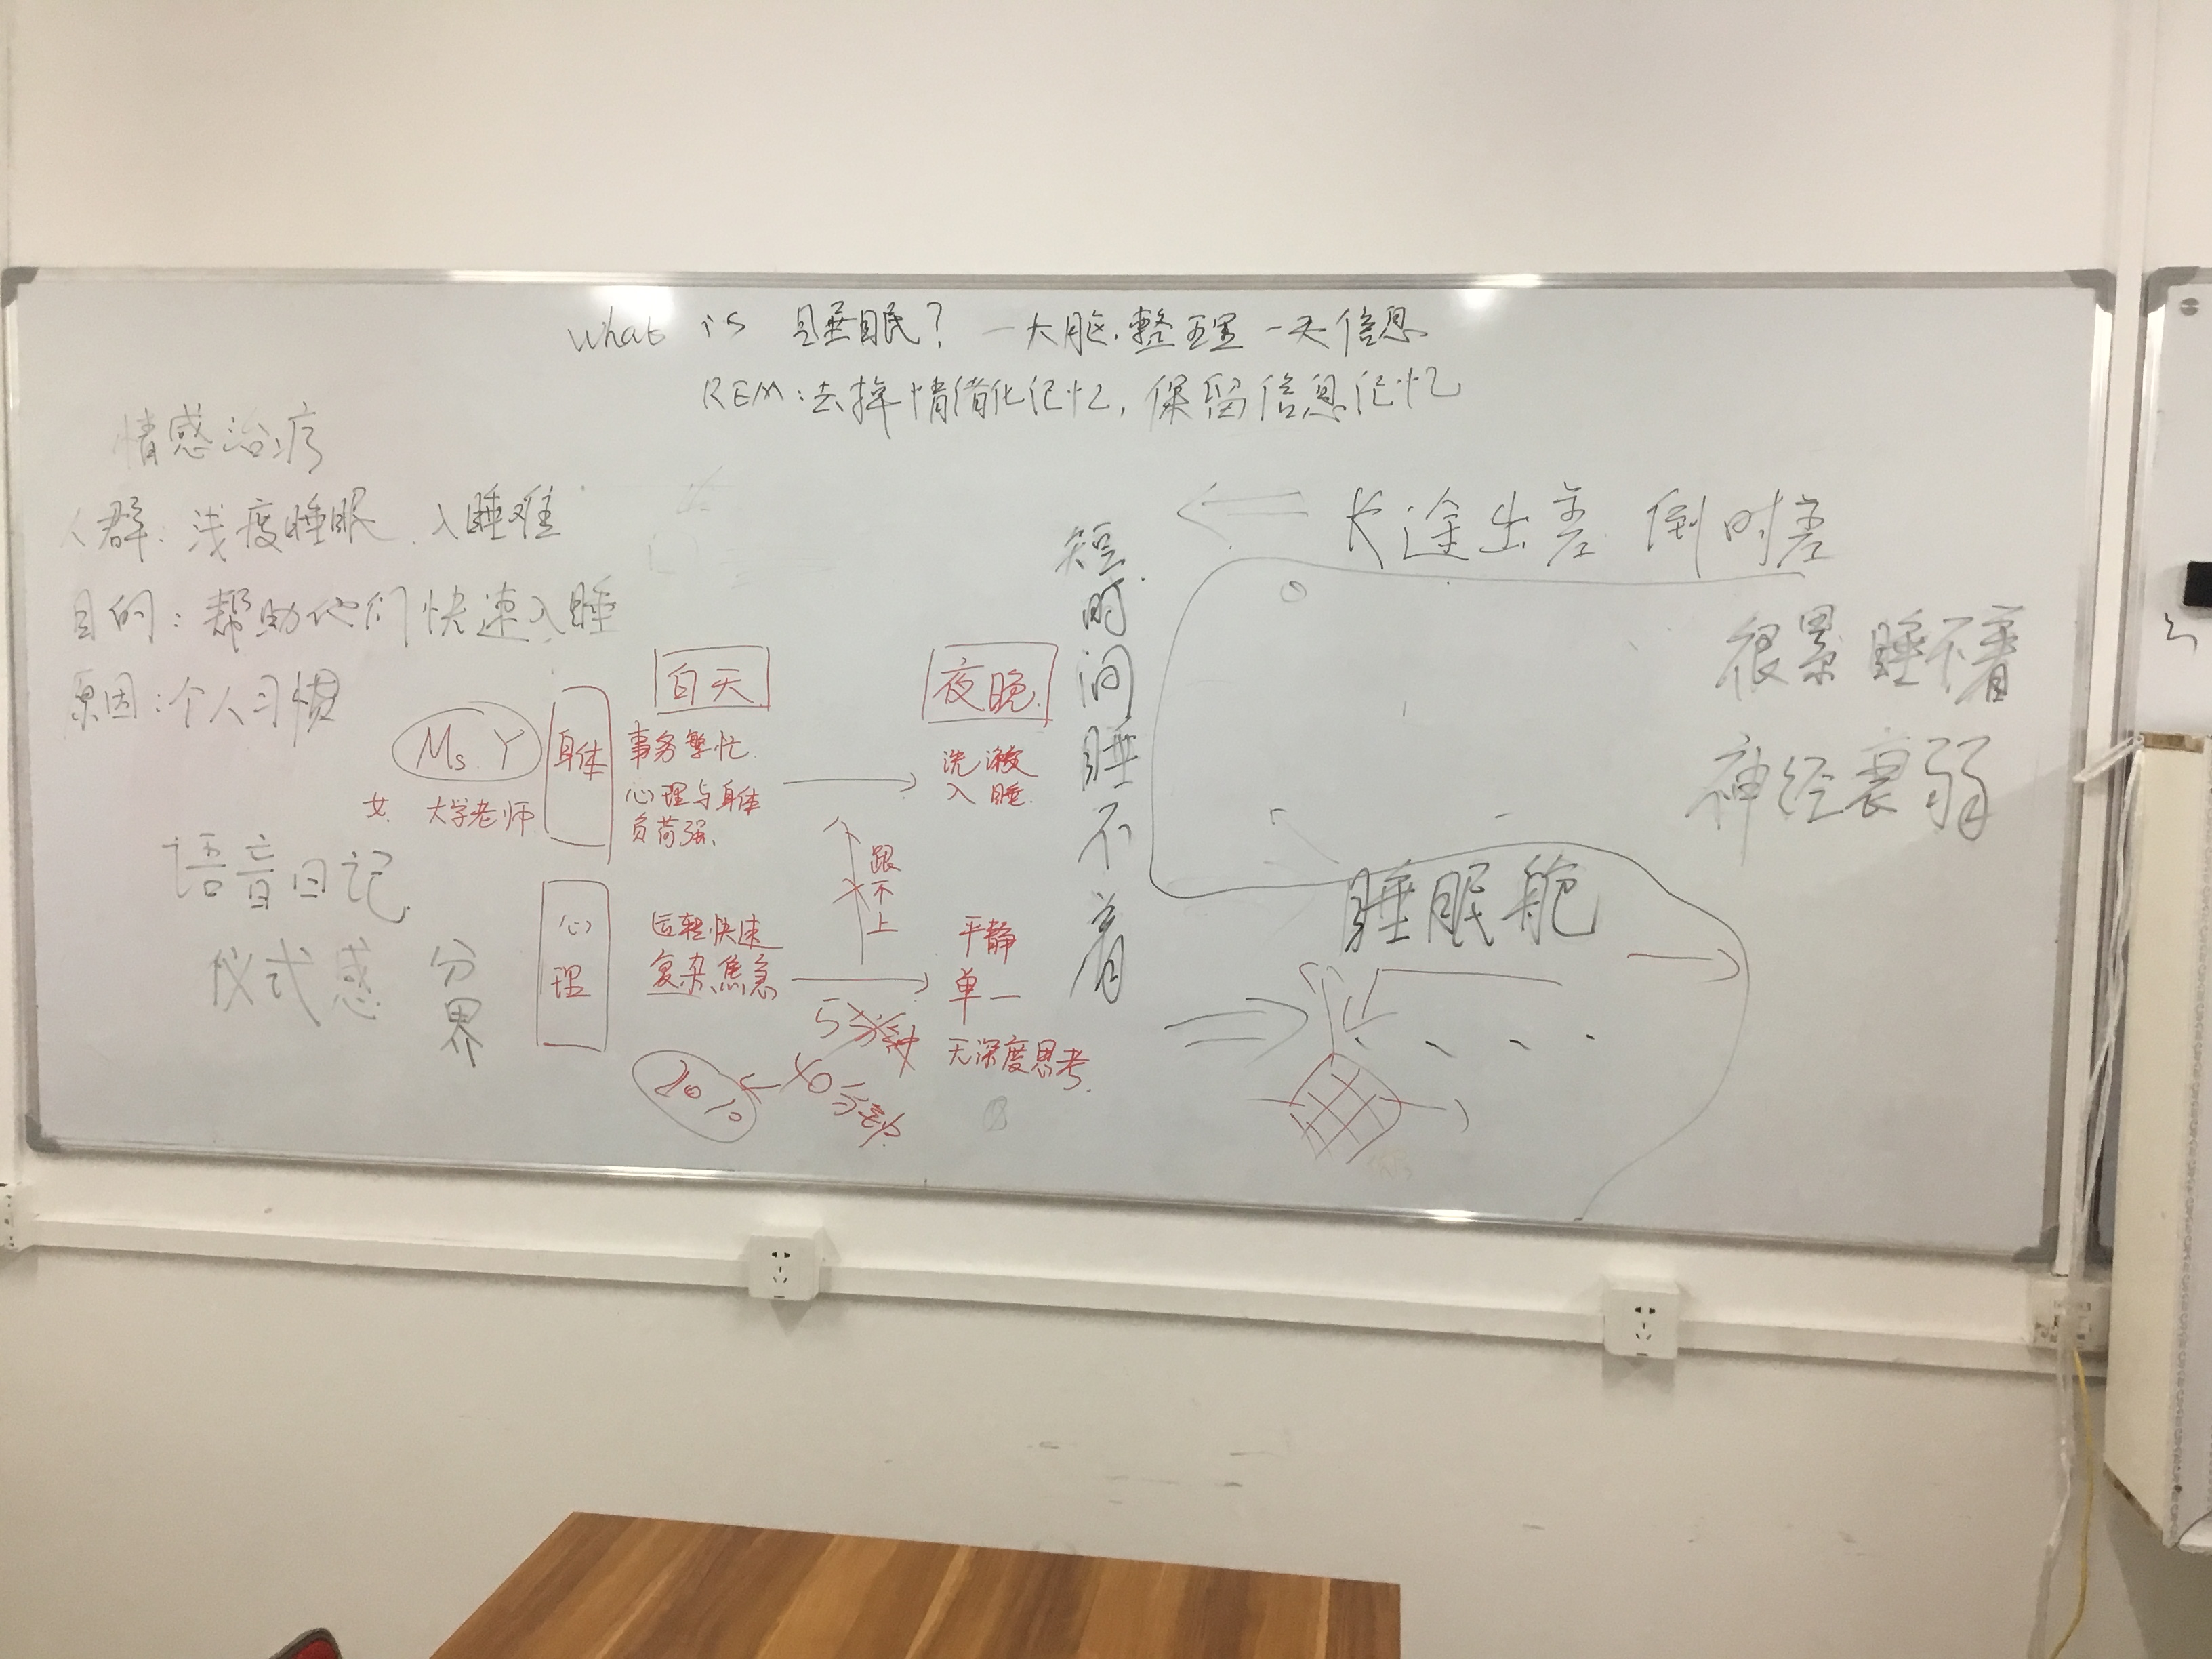 What is 睡眠？— 大脑整理一天信息
REM：去掉情绪化记忆，保留信息记忆
情感治疗
人群：浅度睡眠、入睡难
目的：帮助他们快速入睡
原因：个人习惯
Ms. Y
女. 大学老师
语音日记
仪式感 分界
身体
心理
白天
事务繁忙.
心理与身体
负荷强.
运转快速
复杂、焦急
跟不上
5分钟
10分钟
夜晚
洗漱
入睡.
平静
单一
无深度思考.
短时间睡不着
长途出差 倒时差
很累 睡不着
神经衰弱
睡眠舱